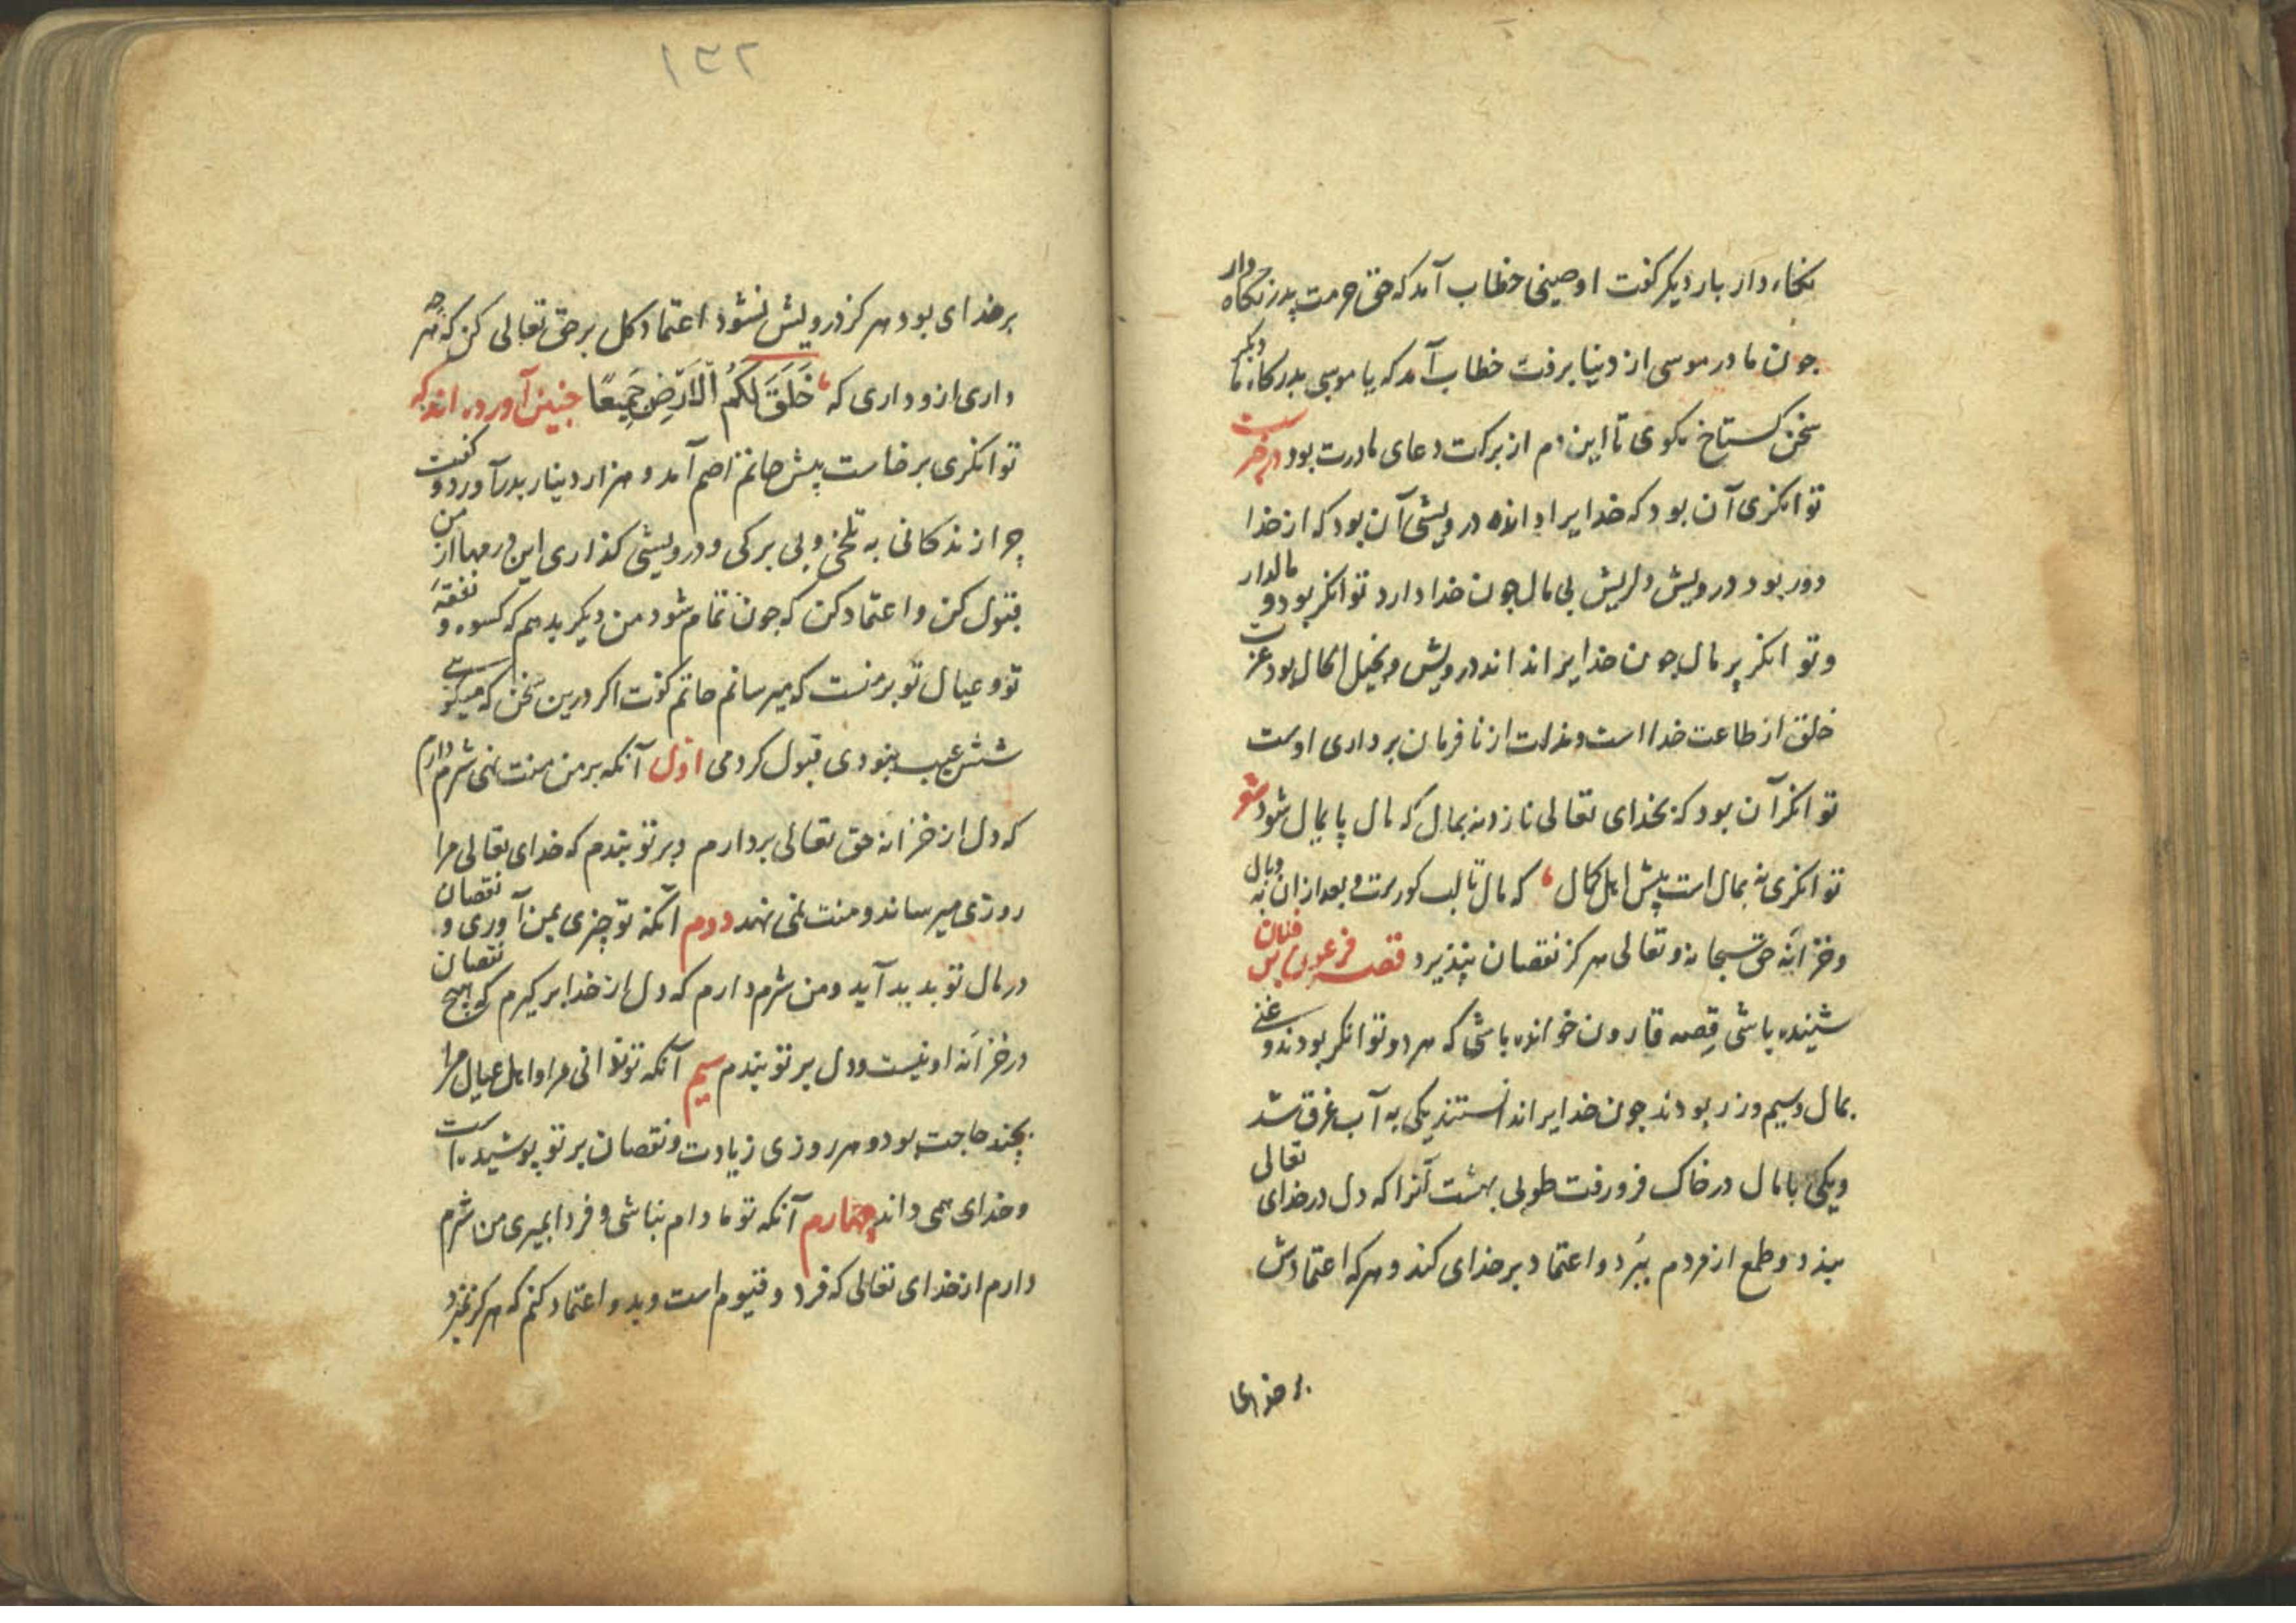 نگاه دار بار دیگر گفت اوصینی خطاب آمد که حق حرمت پدر نگاه دار
چون مادر موسی از دنیا برفت خطاب آمد که یا موسی بدرگاه ما دیگر
سخن گستاخ نگوی تا این دم از برکت دعای مادرت بود در خبر ست
توانگری آن بود که خدایرا داند درویشی آن بود که از خدا
دور بود درویش دلریش بی مال چون خدا دارد توانگر بود و مالدار
و توانگر پر مال چون خدایرا نداند درویش و بخیل الحال بود عزت
خلق از طاعت خدا است و مذلت از نافرمان برداری اوست
توانگر آن بود که بخدای تعالی نازد نه بمال که مال پایمال شود شو
توانگری نه بمال است پیش اهل کمال که مال تا لب گورست و بعد ازان وبال نه
و خزانه حق سبحانه و تعالی هرگز نقصان نپذیرد قصه فرعون
شنیده باشی قصه قارون خوانده باشی که هر دو توانگر بودند و غنی
بمال و سیم و زر بودند چون خدایرا ندانستند یکی به آب غرق شد
و یکی با مال در خاک فرو رفت طوبی بهشت آنرا که دل در خدای تعالی
بندد و طمع از مردم ببُرد و اعتماد بر خدای کند و هر که اعتمادش
بر خدای
۱۳۲
بر خدای بود هرگز درویش نشود اعتماد کل بر حق تعالی کن که هر چه
داری ازو داری که خَلَقَ لَكُمُ الْاَرْضَ جَمِیعًا چنین آورده اند که
توانگری برخاست پیش حاتم اصم آمد و هزار دینار بدر آورد و گفت
چرا زندکانی به تلخی و بی برگی و درویشی گذاری این درمها از من
قبول کن و اعتماد کن که چون تمام شود من دیگر بدهم که کسوه و نفقهٔ
تو و عیال تو بر منست که میرسانم حاتم گفت اگر درین سخن که میگوئی
شش عیب نبودی قبول کردمی اوّل آنکه بر من منت نهی شرم دارم
که دل از خزانه حق تعالی بردارم و بر تو بندم که خدای تعالی مرا
روزی میرساند و منت نمی نهد دوم آنکه تو چیزی بمن آوری و نقصان
در مال تو بدید آید و من شرم دارم که دل از خدا برگیرم که هیچ نقصان
در خزانه او نیست و دل بر تو بندم سیم آنکه تو ندانی مرا و اهل عیال مرا
بچند حاجت بود و هر روزی زیادت و نقصان بر تو پوشیده است
و خدای همی داند چهارم آنکه تو مادام نباشی و فردا بمیری من شرم
دارم از خدای تعالی که فرد و قیوم است و بدو اعتماد کنم که هرگز نمیرد